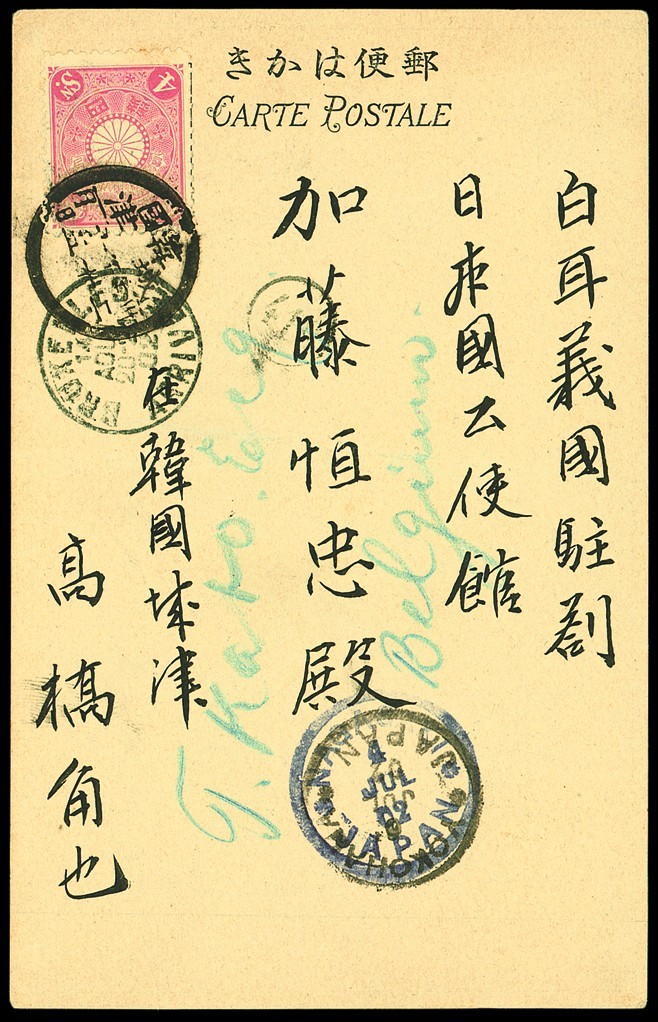 郵便はかき
CARTE POSTALE
4 Sn.
白耳義國駐剳
日本國公使館
加藤恒忠殿
在韓國城津
高橋角也
T. Kato. Esq
Belgium.
YOKOHAMA
JAPAN
JUL
02
JAPAN